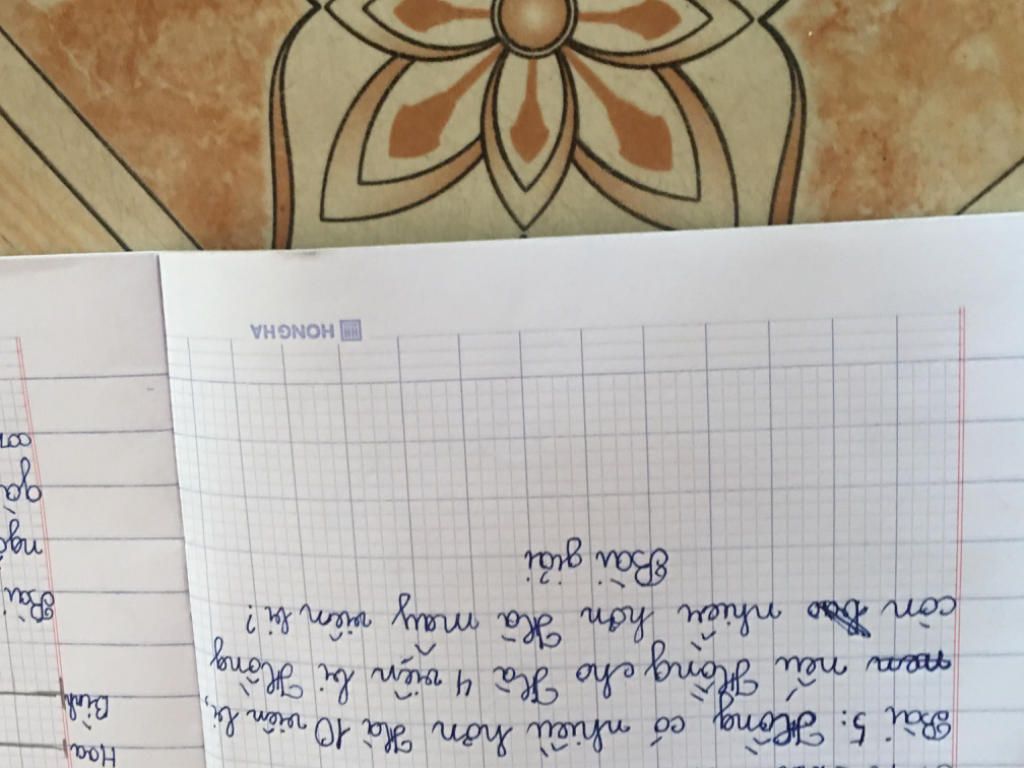 Hoa
Bình
Bài
ngà
gà
con
Bài 5: Hồng có nhiều hơn Hà 10 viên bi,
nếu Hồng cho Hà 4 viên bi Hồng
còn nhiều hơn Hà mấy viên bi?
Bài giải
HH HONG HA